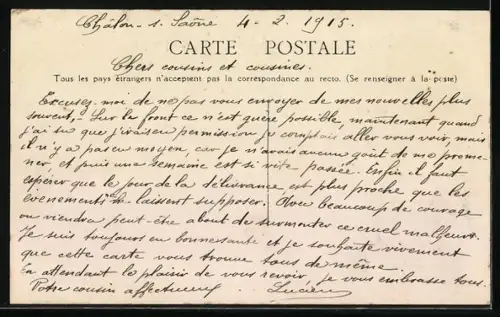 Châlon-s-Saône 4-2-1915.
CARTE POSTALE
Chers cousins et cousines.
Tous les pays étrangers n'acceptent pas la correspondance au recto. (Se renseigner à la poste)
Excusez-moi de ne pas vous envoyer de mes nouvelles plus
souvent,- Sur la front ce n'est guère possible, maintenant quand
j'ai su que j'irais en permission je comptais aller vous voir, mais
il n'y a pas eu moyen, car je n'avais aucun goût de me prome-
ner et puis une semaine est si vite passée. Enfin il faut
espérer que le jour de la délivrance est plus proche que les
évènements le laissent supposer. Avec beaucoup de courage
on viendra peut-être a bout de surmonter ce cruel malheur.
Je suis toujours en bonne santé et je souhaite vivement
que cette carte vous trouve tous de même.
En attendant le plaisir de vous revoir, je vous embrasse tous.
Votre cousin affectueux Lucien